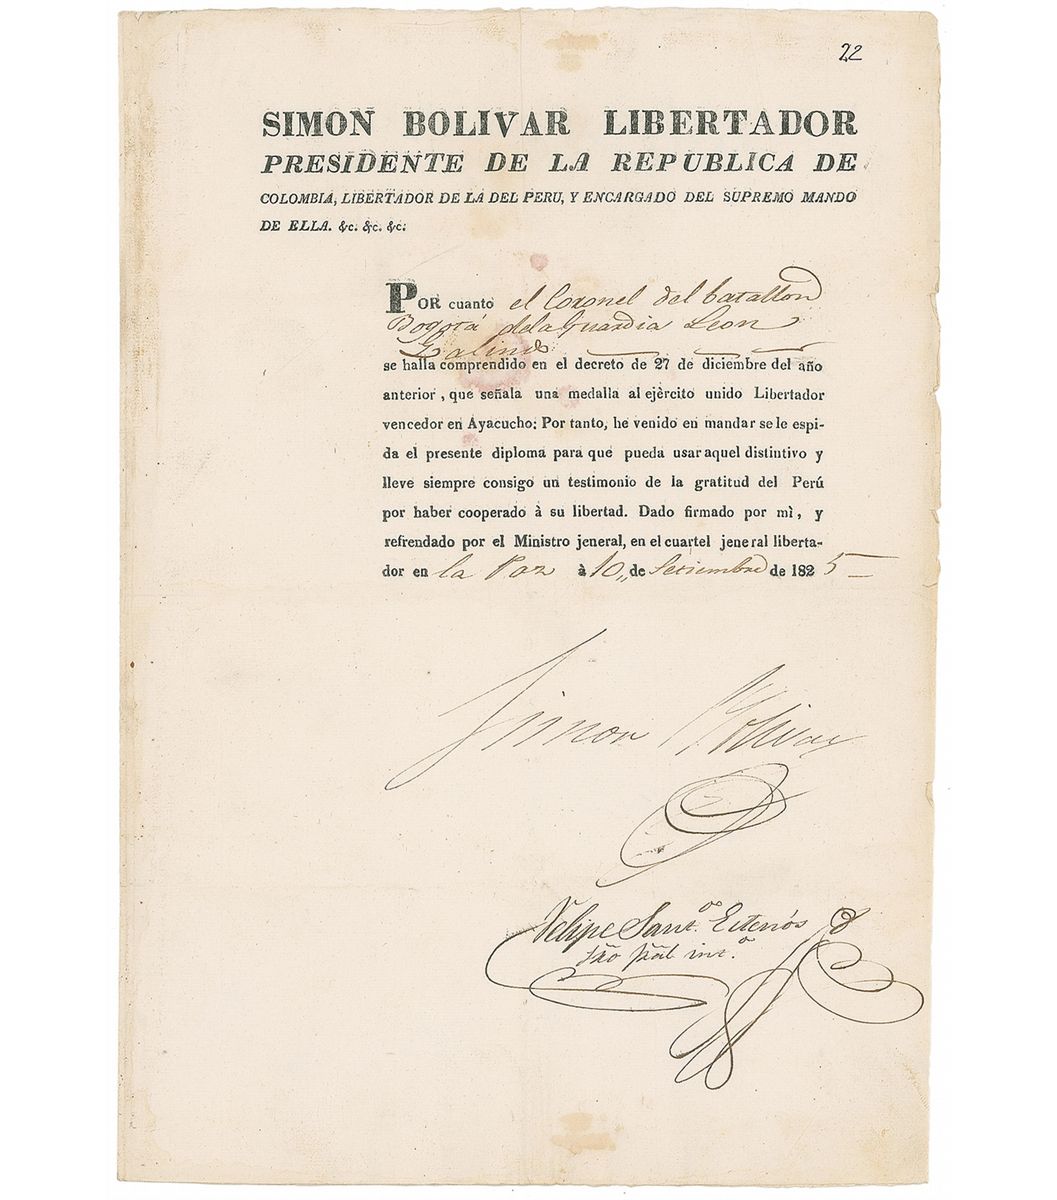 22
SIMON BOLIVAR LIBERTADOR
PRESIDENTE DE LA REPUBLICA DE
COLOMBIA, LIBERTADOR DE LA DEL PERU, Y ENCARGADO DEL SUPREMO MANDO
DE ELLA. &c. &c. &c:
POR cuanto el Coronel del batallon
Bogotá dela Guardia Leon
Galindo
se halla comprendido en el decreto de 27 de diciembre del año
anterior, que señala una medalla al ejèrcito unido Libertador
vencedor en Ayacucho: Por tanto, he venido en mandar se le espi-
da el presente diploma para que pueda usar aquel distintivo y
lleve siempre consigo un testimonio de la gratitud del Perú
por haber cooperado à su libertad. Dado firmado por mì, y
refrendado por el Ministro jeneral, en el cuartel jeneral liberta-
dor en la Paz à 10,, de Setiembre de 1825
Simon Bolivar
Felipe Sant.º Estenós
Srio gral int.º